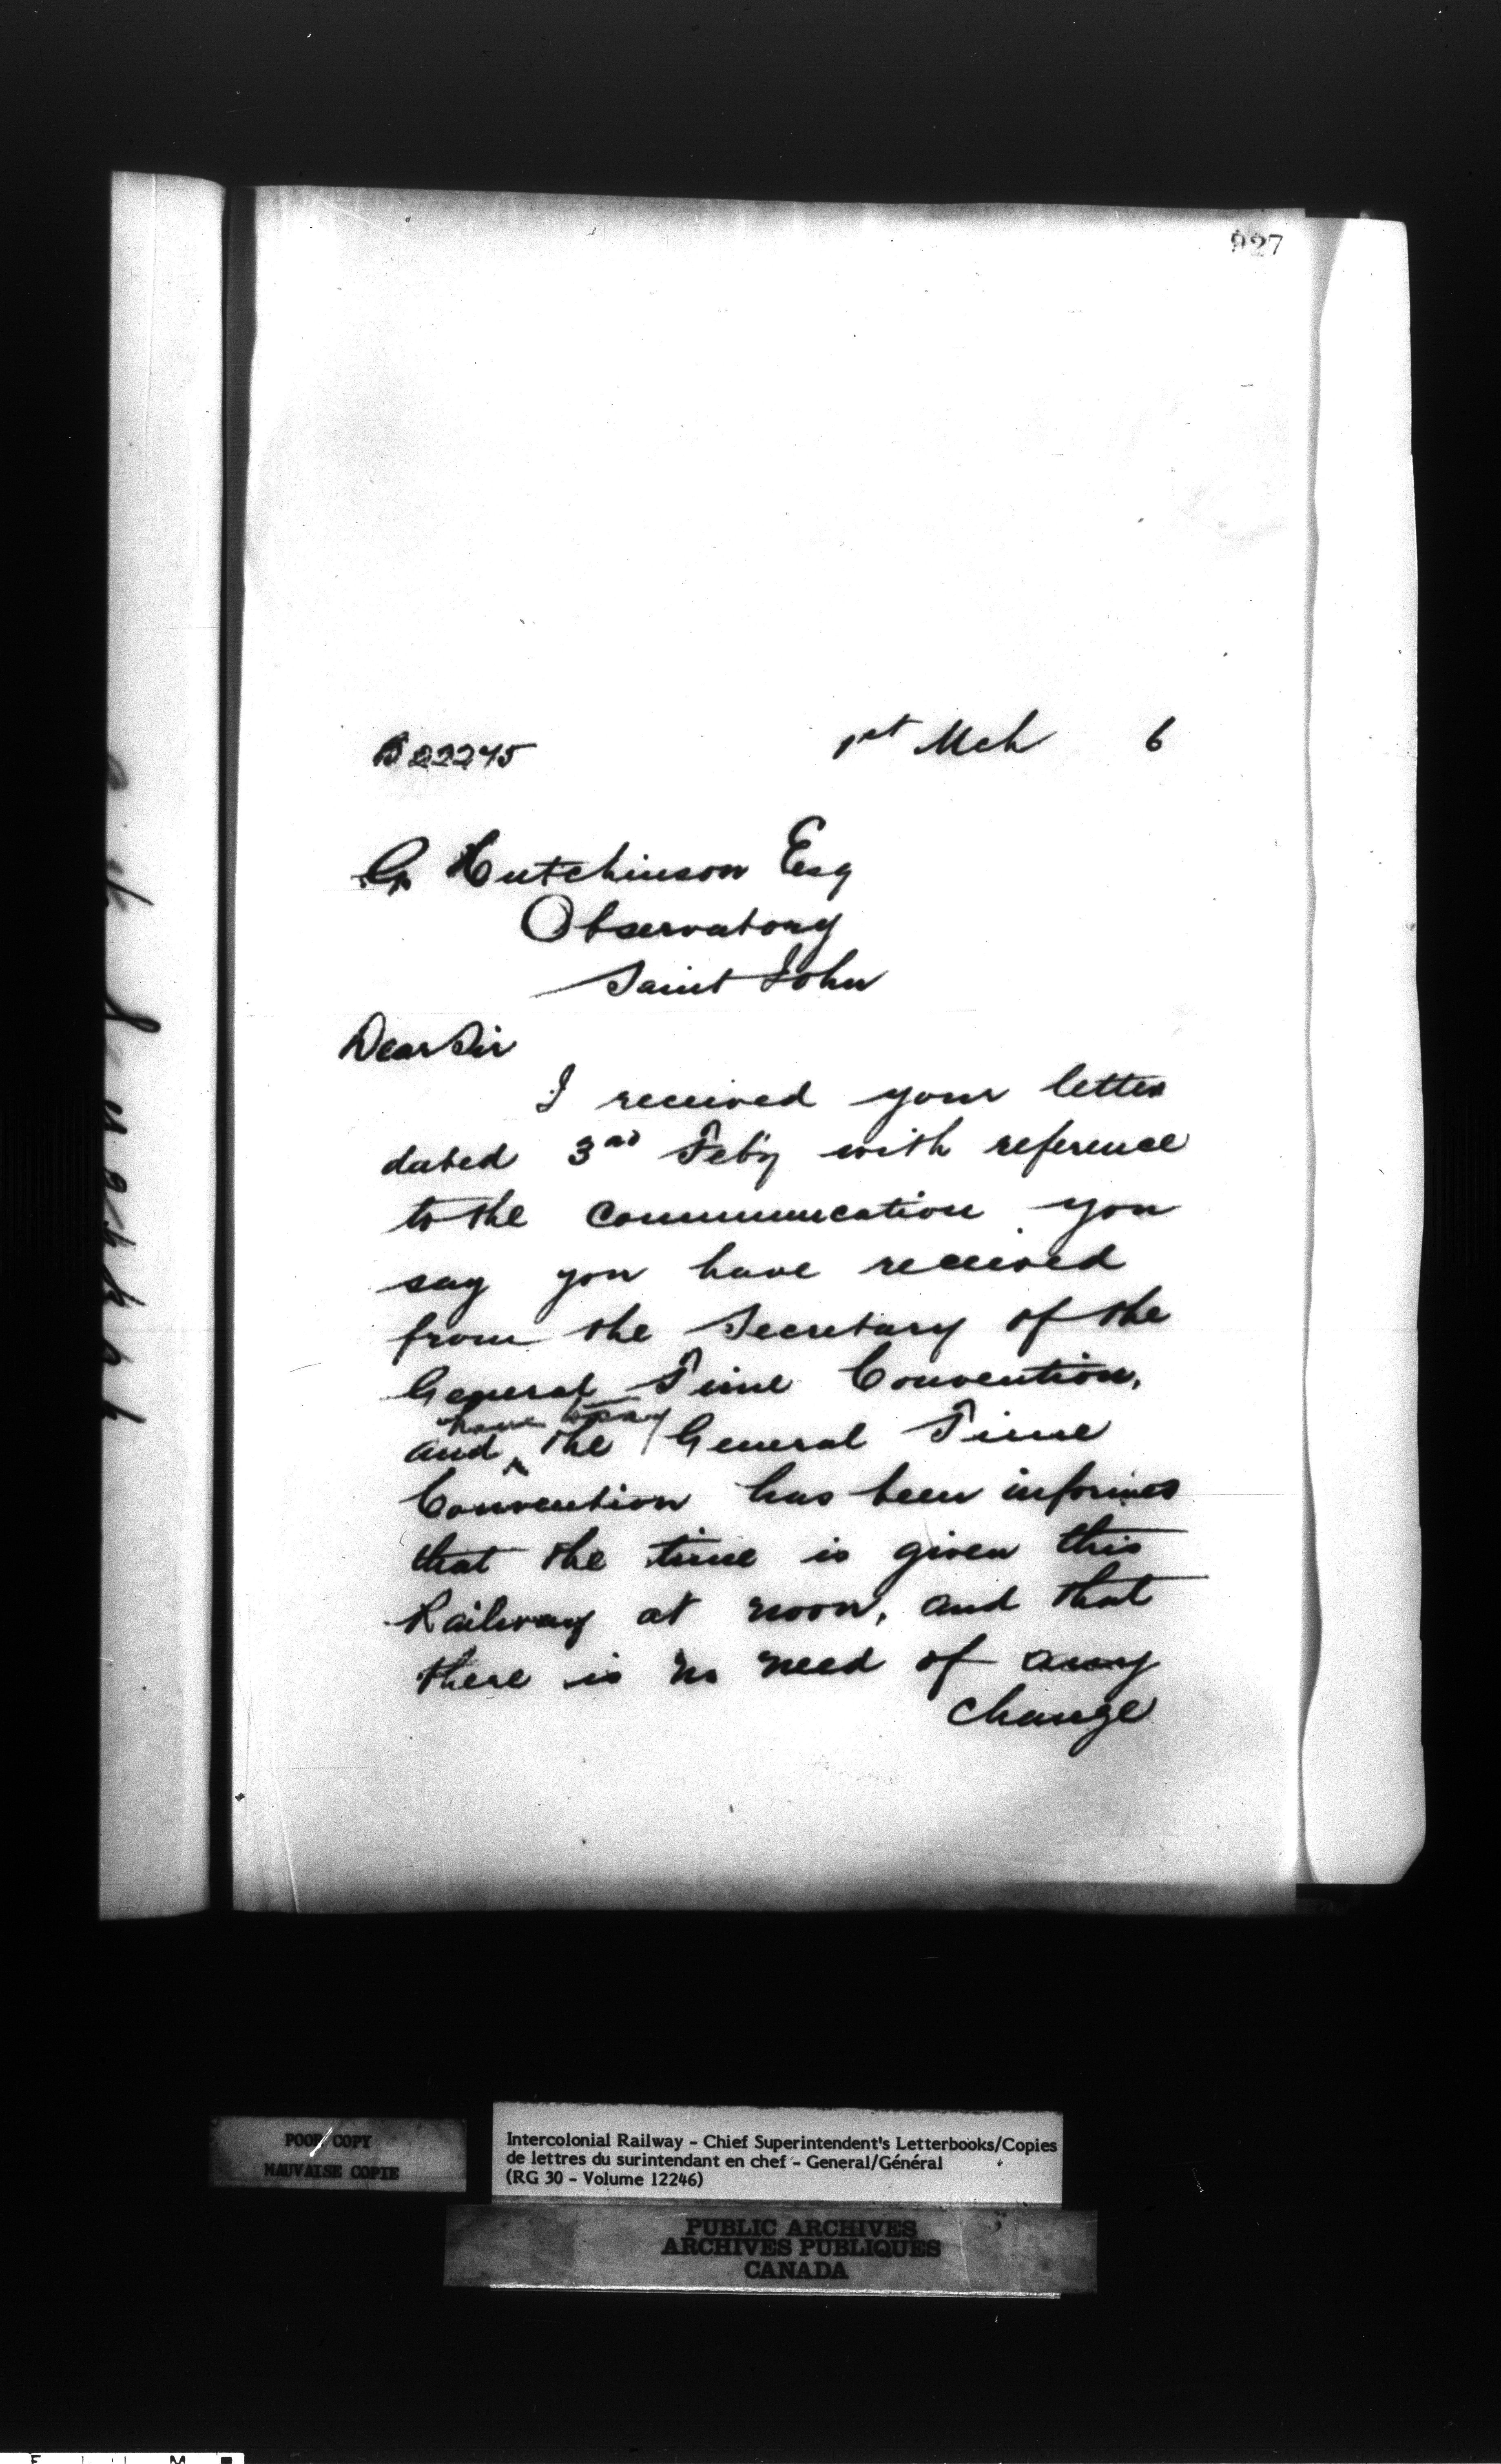 927
B 22275 1st Mch 6
G Hutchinson Esq
Observatory
Saint John
Dear Sir
I received your letter
dated 3rd Feby with reference
to the communication you
say you have received
from the Secretary of the
General Time Convention,
have to say
and ^ the General Time
Convention has been informed
that the time is given this
Railway at noon, and that
there is no need of any
change
POOR COPY
MAUVAISE COPIE
Intercolonial Railway - Chief Superintendent's Letterbooks/Copies
de lettres du surintendant en chef - General/Général
(RG 30 - Volume 12246)
PUBLIC ARCHIVES
ARCHIVES PUBLIQUES
CANADA